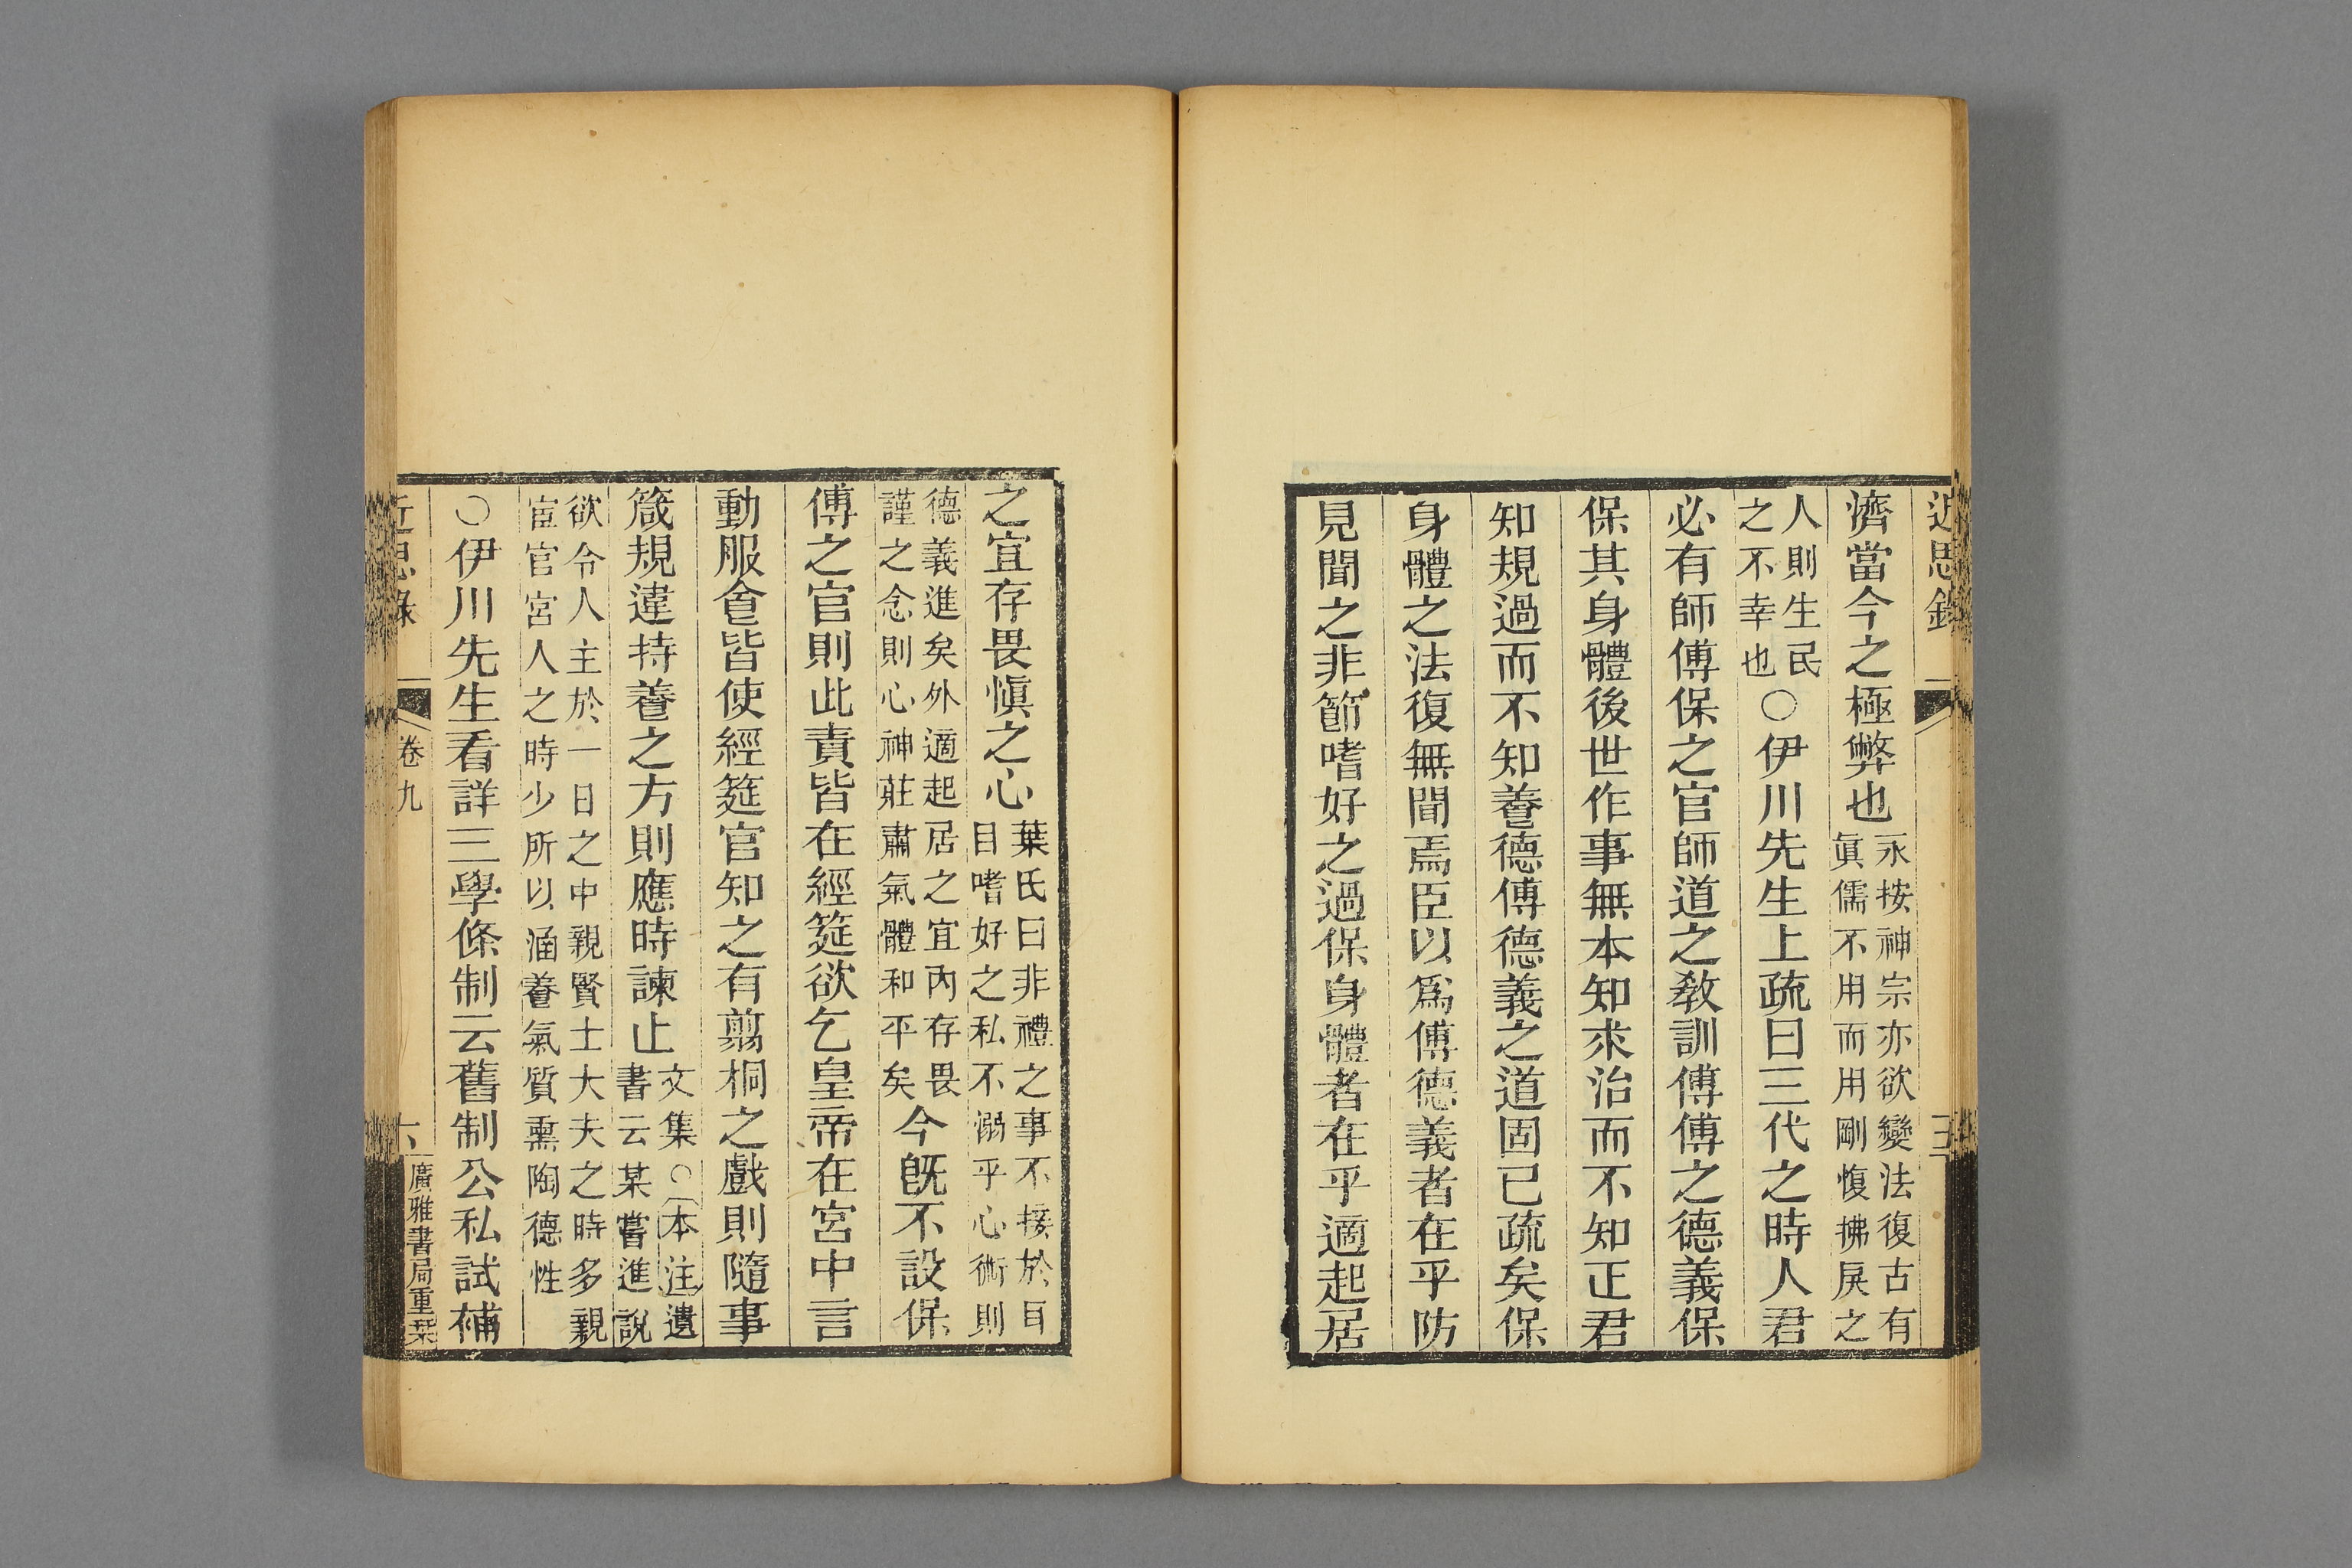 近思錄
濟當今之極弊也
永按神宗亦欲變法復古有
眞儒不用而用剛愎拂戾之
人則生民
之不幸也
○伊川先生上疏曰三代之時人君
必有師傅保之官師道之敎訓傅傅之德義保
保其身體後世作事無本知求治而不知正君
知規過而不知養德傅德義之道固已疏矣保
身體之法復無聞焉臣以爲傅德義者在乎防
見聞之非節嗜好之過保身體者在乎適起居
之宜存畏愼之心
葉氏曰非禮之事不接於耳
目嗜好之私不溺乎心術則
德義進矣外適起居之宜內存畏
謹之念則心神莊肅氣體和平矣
今旣不設保
傅之官則此責皆在經筵欲乞皇帝在宮中言
動服食皆使經筵官知之有翦桐之戲則隨事
箴規違持養之方則應時諫止
文集○本注遺
書云某嘗進說
欲令人主於一日之中親賢士大夫之時多親
宦官宮人之時少所以涵養氣質熏陶德性
○伊川先生看詳三學條制云舊制公私試補
近思錄
卷九
廣雅書局重栞